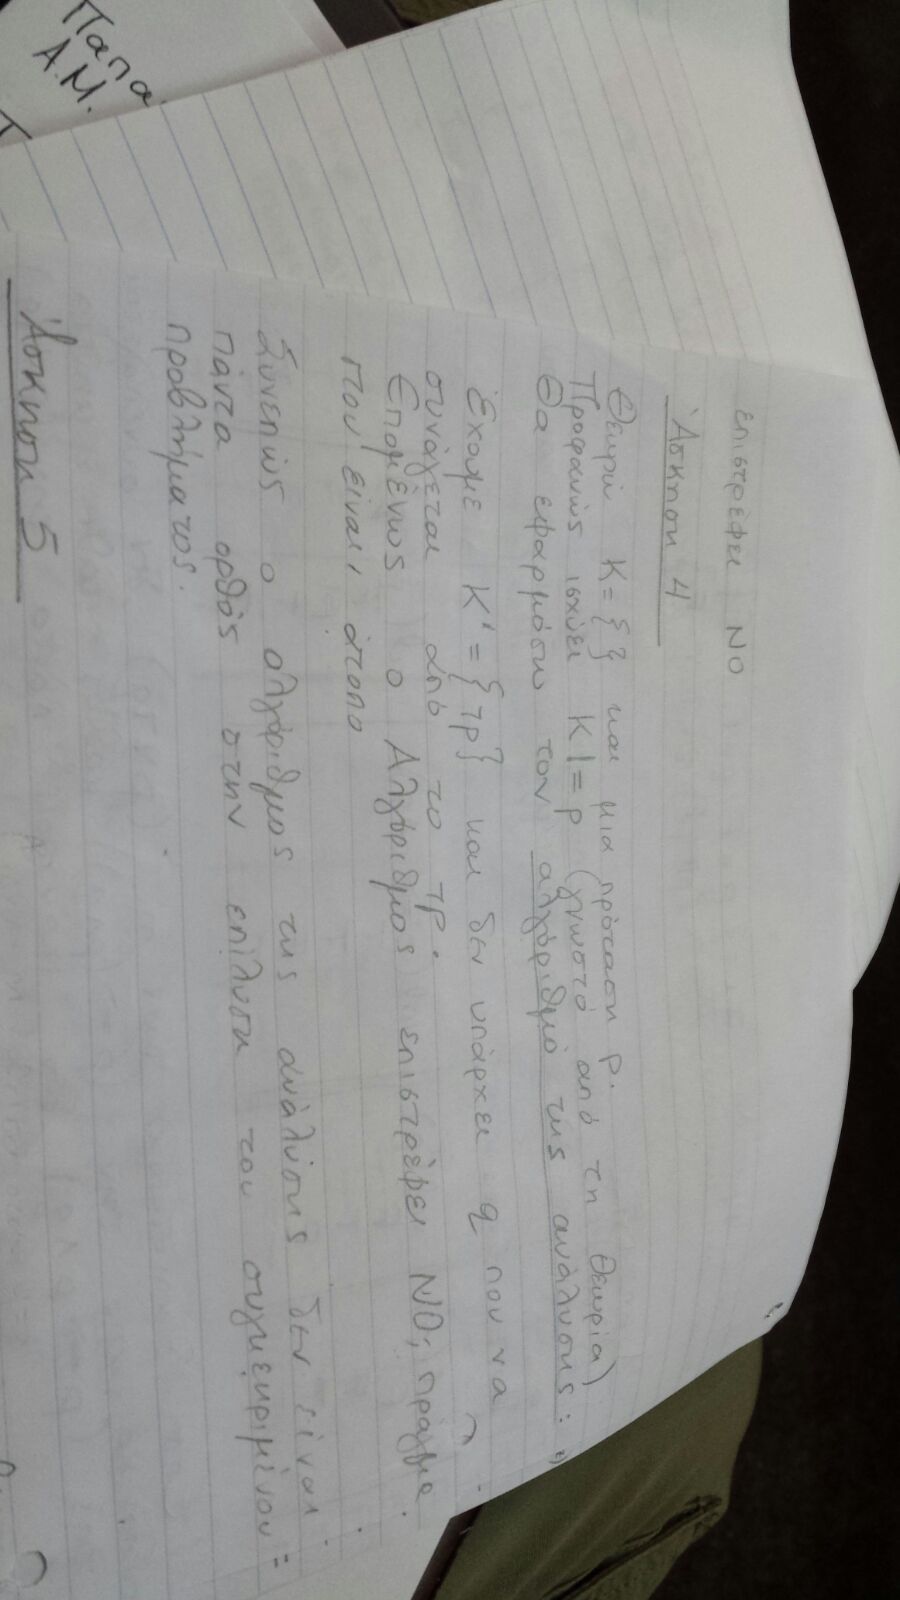 Παπα
Α.Μ.
επιστρέφει NO
Άσκηση 4
Θεωρώ K={} και μια πρόταση p.
Προφανώς ισχύει K|=p (γνωστό από τη θεωρία)
Θα εφαρμόσω τον αλγόριθμό της ανάλυσης:
Έχουμε K'={¬p} και δεν υπάρχει q που να
συνάγεται από το ¬p.
Επομένως ο Αλγόριθμος επιστρέφει NO, πράγμα
που είναι άτοπο
Συνεπώς ο αλγόριθμος της ανάλυσης δεν είναι
πάντα ορθός στην επίλυση του συγκεκριμένου
προβλήματος.
Άσκηση 5